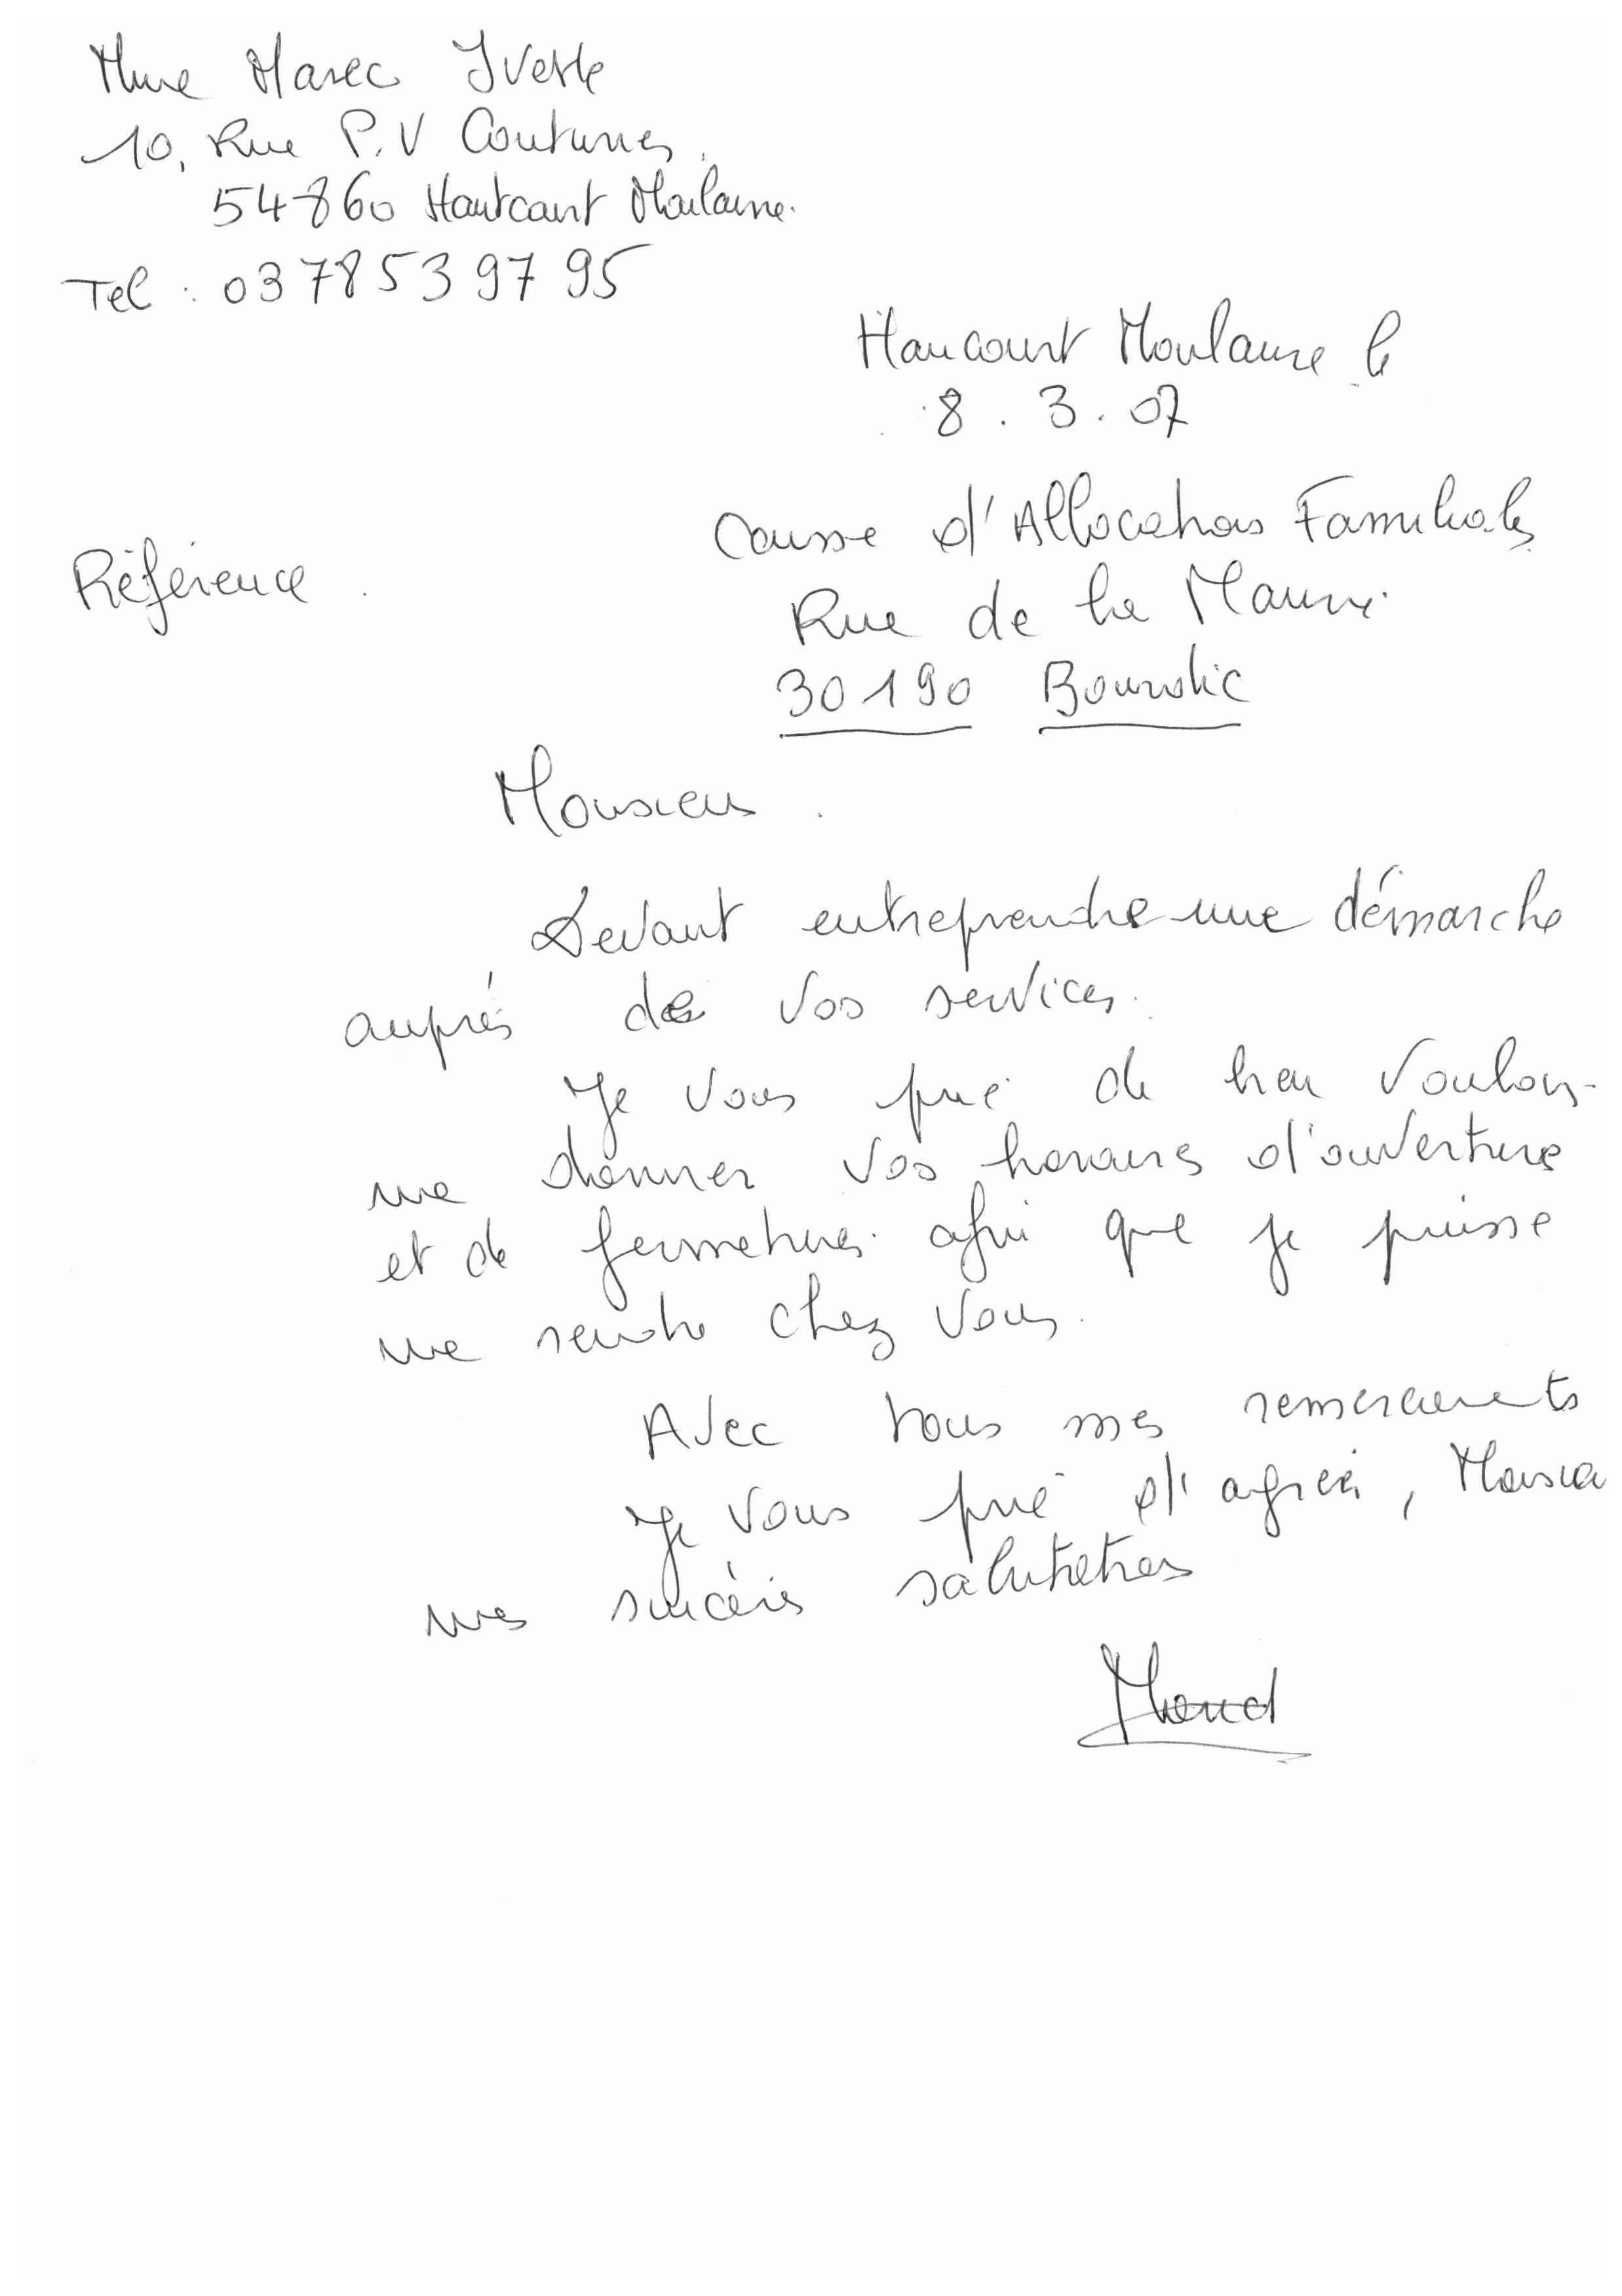 Mme Marec Yvette
10, Rue P.V Coutures
54860 Hautcourt Moulaine.
Tel : 03 78 53 97 95
Haucourt Moulaine le
8.3.07
Caisse d'Allocations Familiales
Référence
Rue de la Mairie
30190 Bourdic
Monsieur
Devant entreprendre une démarche
auprés de vos services.
Je vous prie de bien vouloir
me donner vos horaires d'ouverture
et de fermetures afin que je puisse
me rendre chez vous.
Avec tous mes remerciements
Je vous prie d'agréer, Monsieur
mes sincères salutations